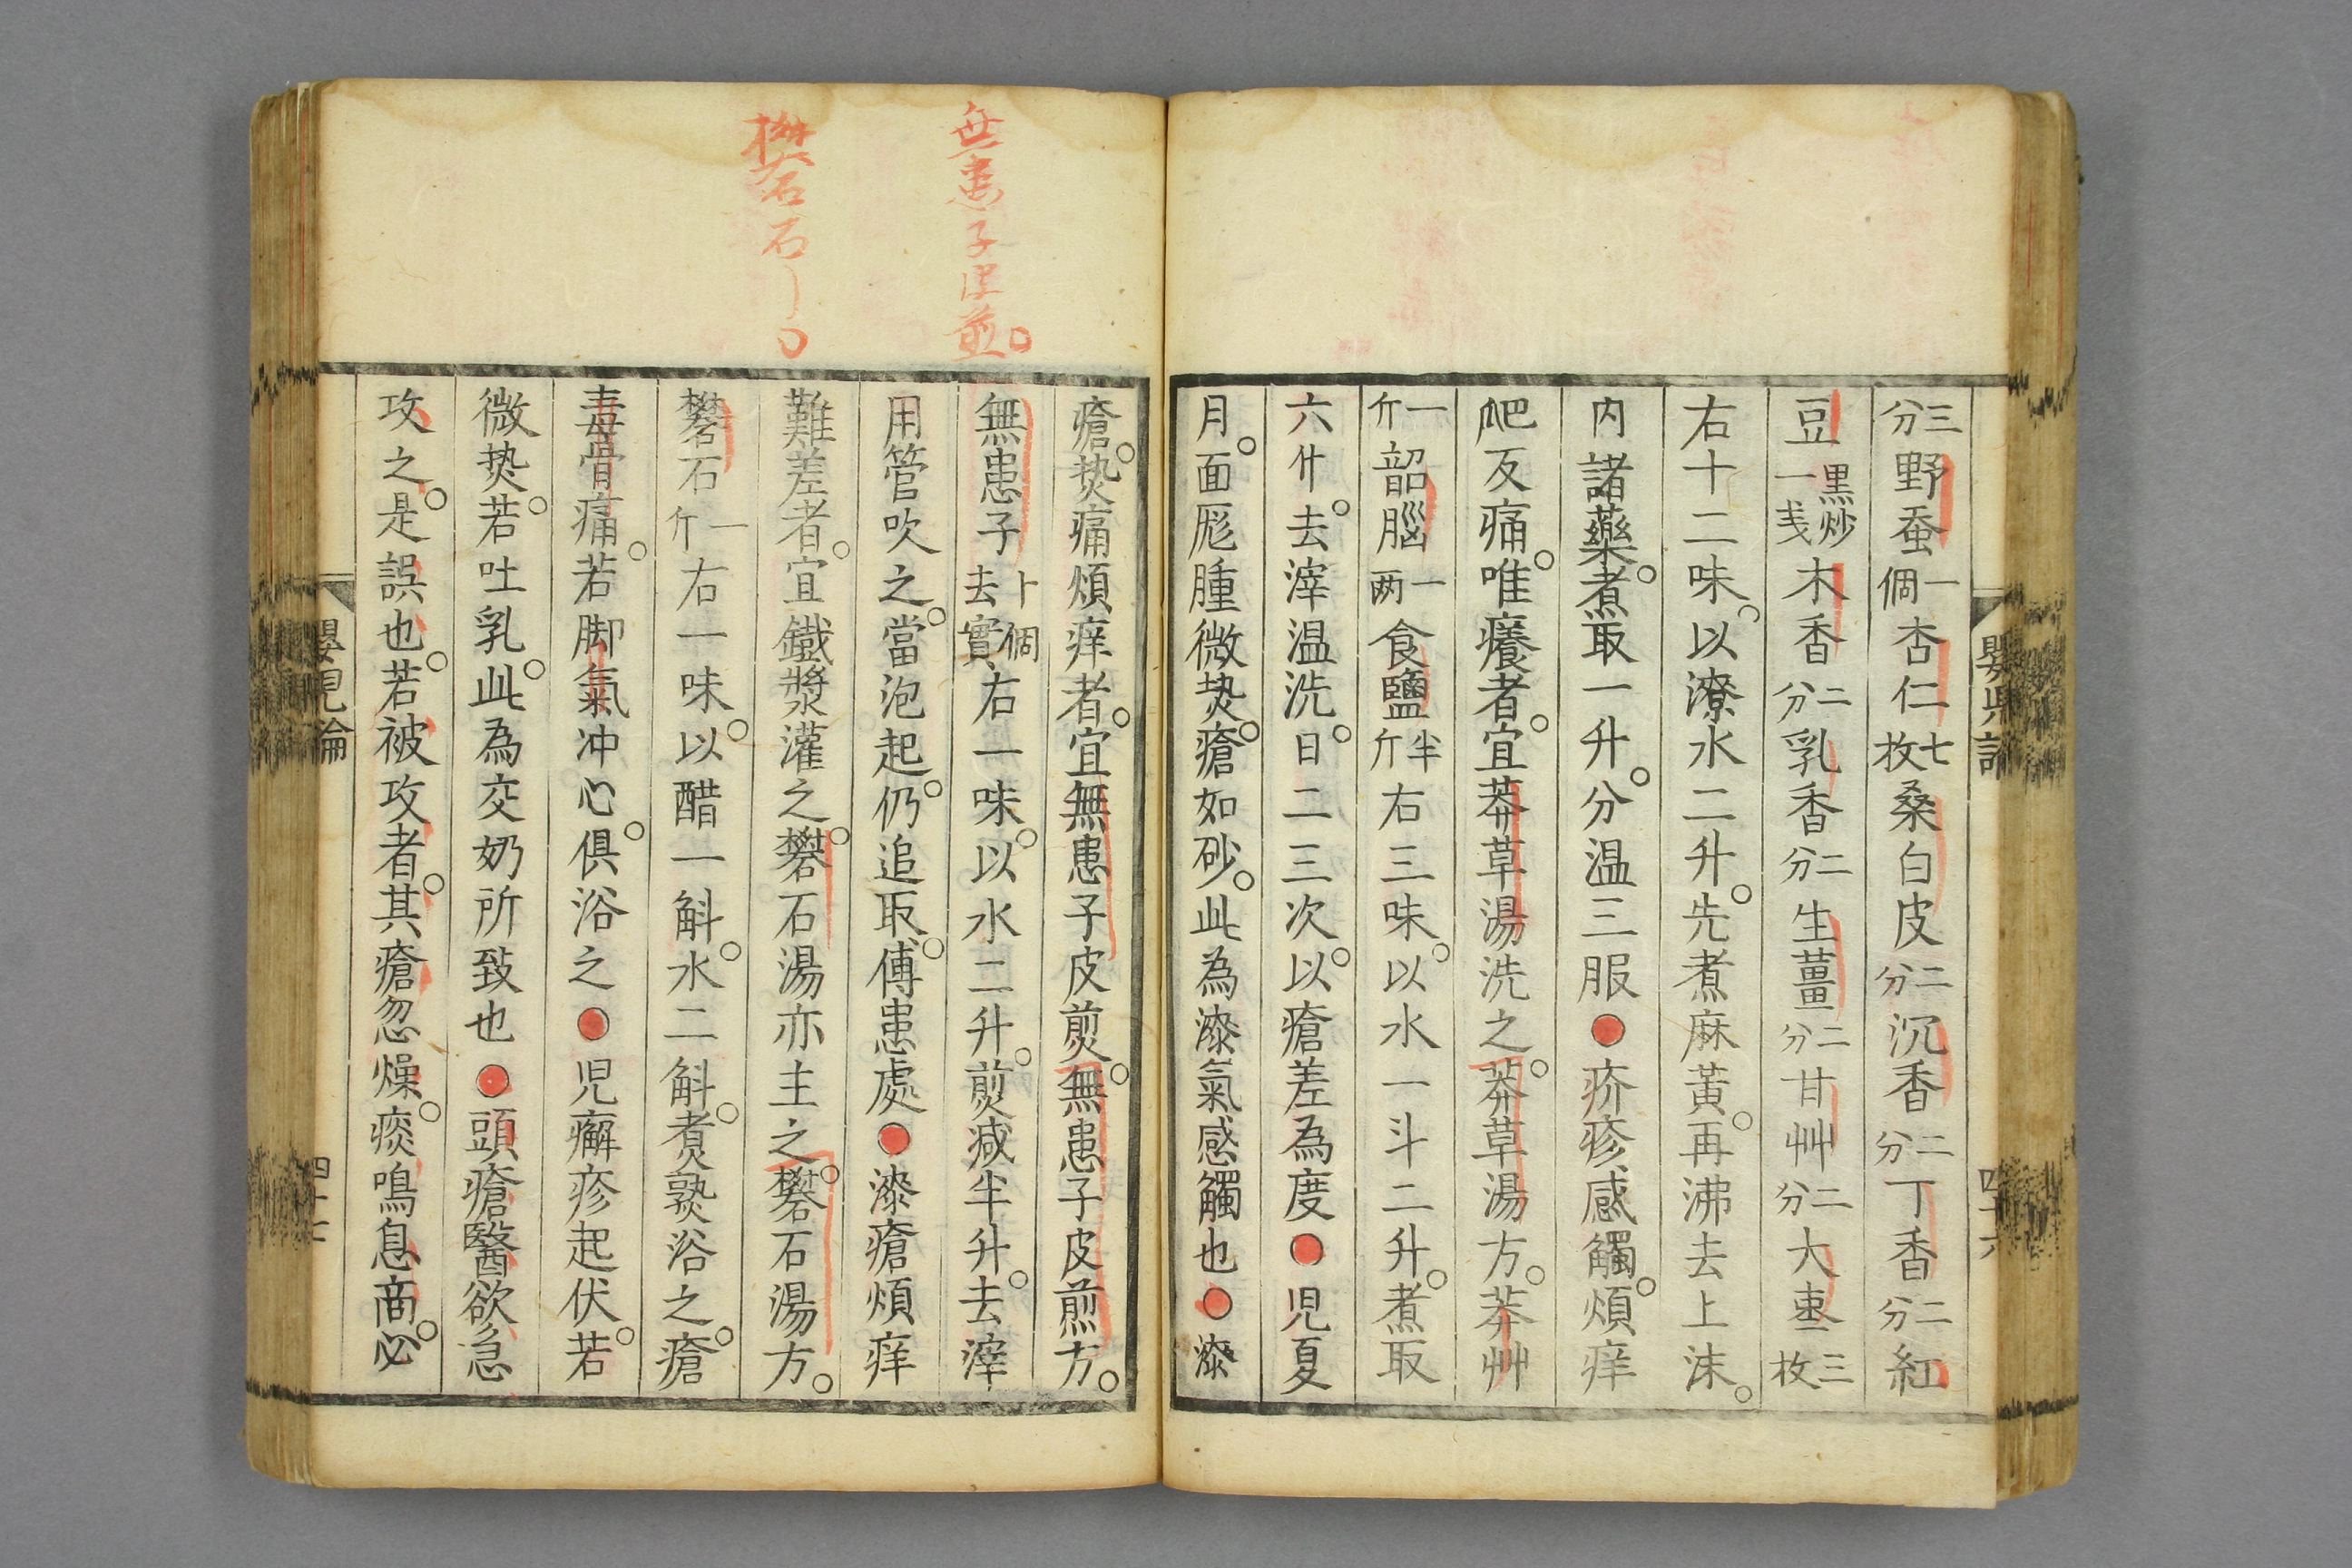 三分野蚕一個杏仁七枚桑白皮二分沉香二分丁香二分紅
豆黒炒一戋木香二分乳香二分生薑二分甘艸二分大棗三枚
右十二味。以潦水二升。先煮麻黃。再沸去上沫。
内諸藥。煮取一升。分温三服●疥疹感觸。煩痒
爬反痛。唯癢者。宜莽草湯洗之。莽草湯方。莽艸
一斤韶腦一两食鹽半斤右三味。以水一斗二升。煮取
六升。去滓温洗。日二三次。以瘡差為度●児夏
月。面尨腫微𤍠。瘡如砂。此為漆氣感觸也●漆
瘡。𤍠痛煩痒者。宜無患子皮煎。無患子皮煎方。
無患子卜個去實右一味。以水二升。煎減半升。去滓
用管吹之。當泡起。仍追取。傅患處●漆瘡煩痒
難差者。宜鐵漿灌之。礬石湯亦主之。礬石湯方。
礬石一斤右一味。以醋一斛。水二斛。煮熟浴之。瘡
毒骨痛。若脚氣冲心。俱浴之●児癬疹起伏。若
微𤍠。若吐乳。此為交奶所致也●頭瘡醫欲急
攻之。是誤也。若被攻者。其瘡忽燥。痰鳴息商。必
無患子皮煎。
礬石石
嬰児論
四十六
嬰児論
四十七